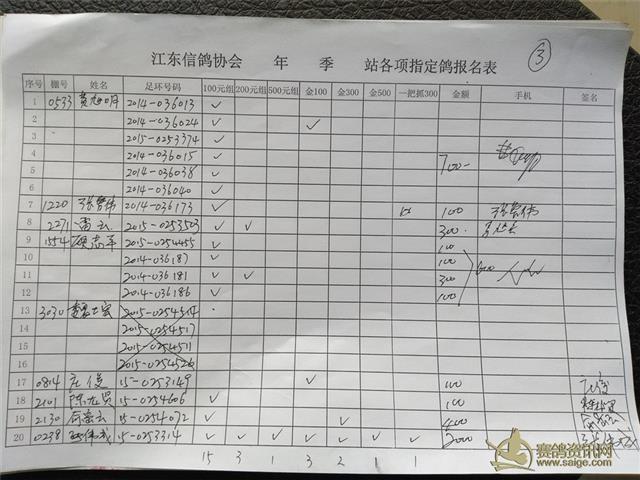 ③
江东信鸽协会 年 季 站各项指定鸽报名表
序号 棚号 姓名 足环号码 100元组 200元组 500元组 金100 金300 金500 一把抓300 金额 手机 签名
1 0533 2014-036013 ✓
2 2014-036024 ✓ ✓
3 2015-0253374 ✓
4 2014-036015 ✓
5 2014-036038 ✓ 700-
6 2014-036040 ✓
7 1220 2014-036173 ✓ 100
8 2271 雷云 2015-0253503 ✓ ✓ 300
9 1554 2015-0254455 ✓ 100
10 2014-036187 ✓ 100
11 2014-036181 ✓ ✓ 300 600
12 2014-036186 ✓ 100
13 3030 2015-0254514
14 2015-0254517
15 2015-0254511
16 2015-0254526
17 0814 15-0253149 ✓ 100
18 2101 15-0254606 ✓ 100
19 2130 15-0254072 ✓ ✓ 400
20 0238 15-0253314 ✓ ✓ ✓ ✓ ✓ ✓ ✓ 2000
15 3 1 3 2 1 1
赛鸽资讯网
www.saige.com